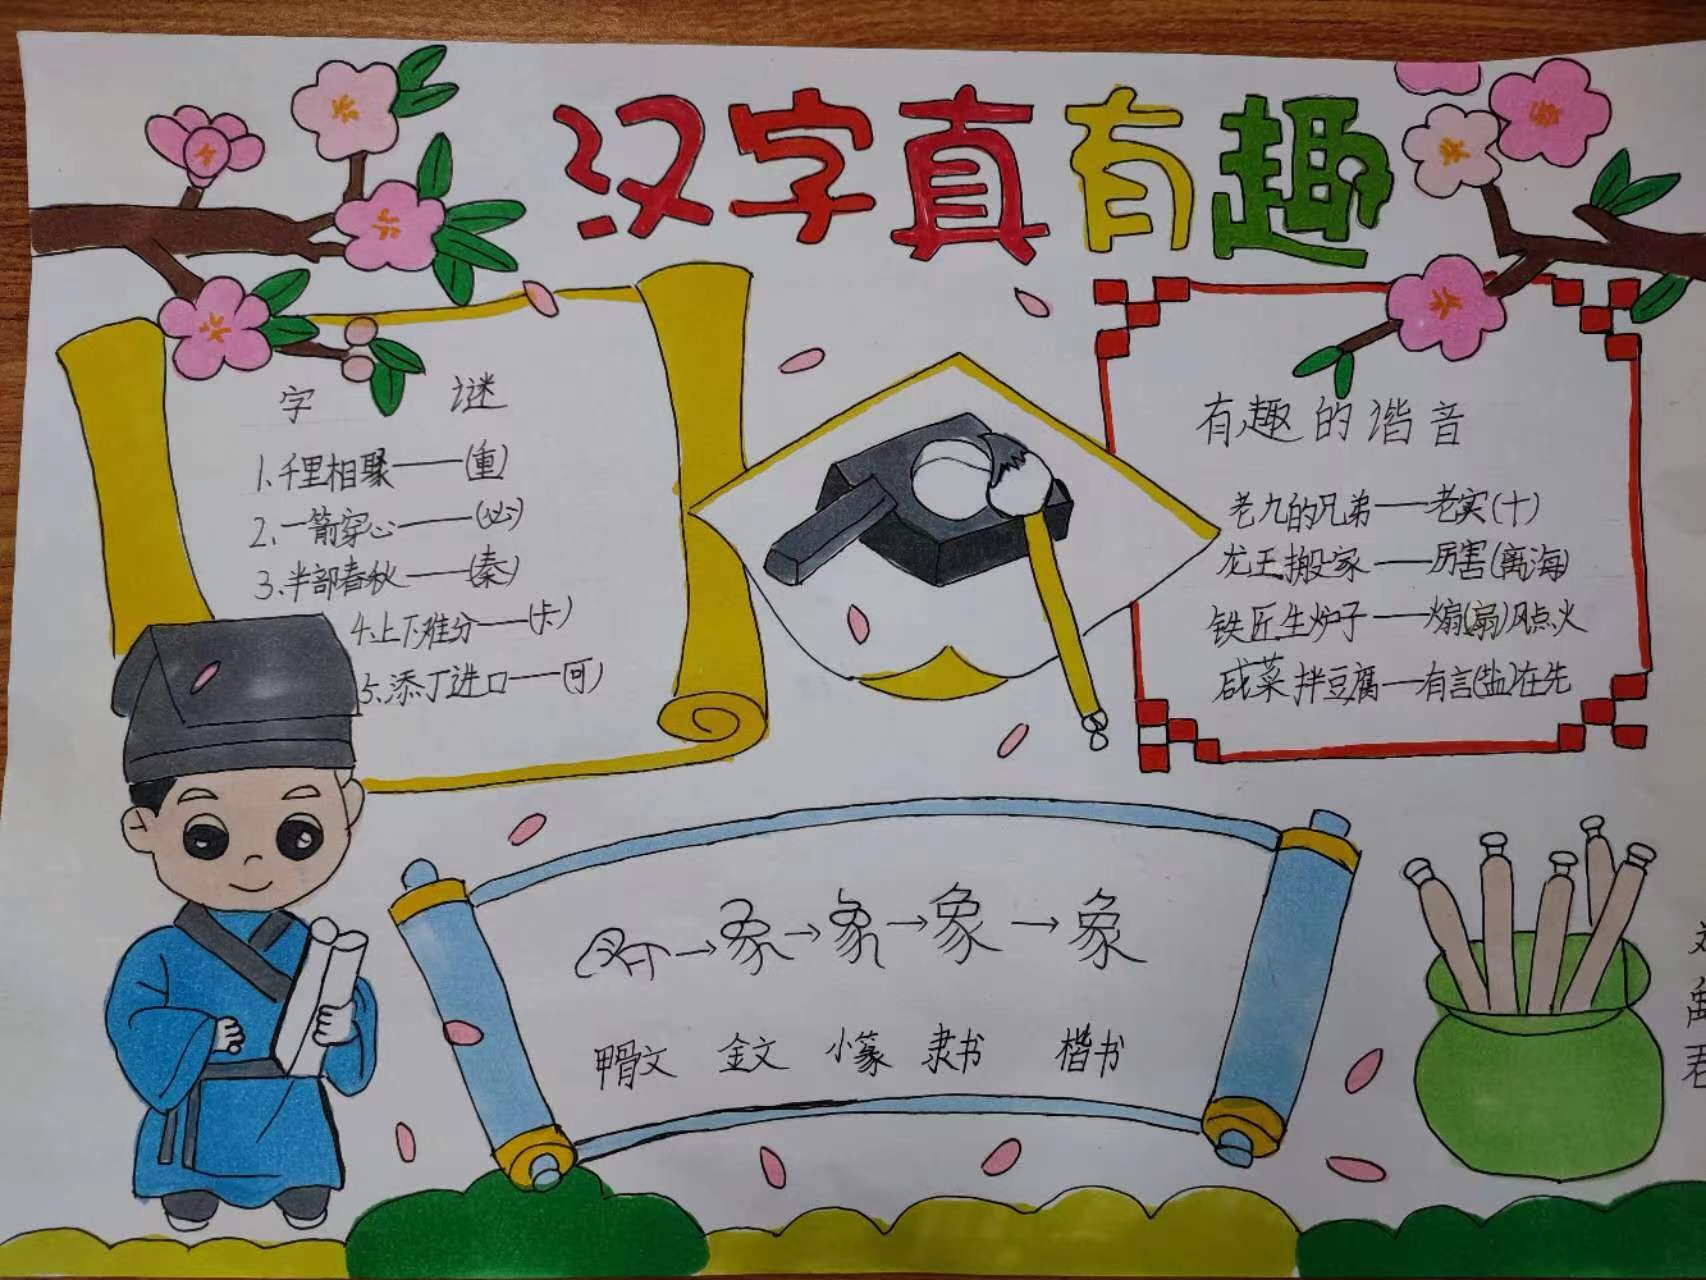 汉字真有趣
字 谜
1、千里相聚——(重)
2、一箭穿心——(必)
3、半部春秋——(秦)
4、上下难分——(卡)
5、添丁进口——(可)
有趣的谐音
老九的兄弟——老实(十)
龙王搬家——厉害(离海)
铁匠生炉子——煽(扇)风点火
咸菜拌豆腐——有言(盐)在先
→象→象→象→象
甲骨文 金文 小篆 隶书 楷书